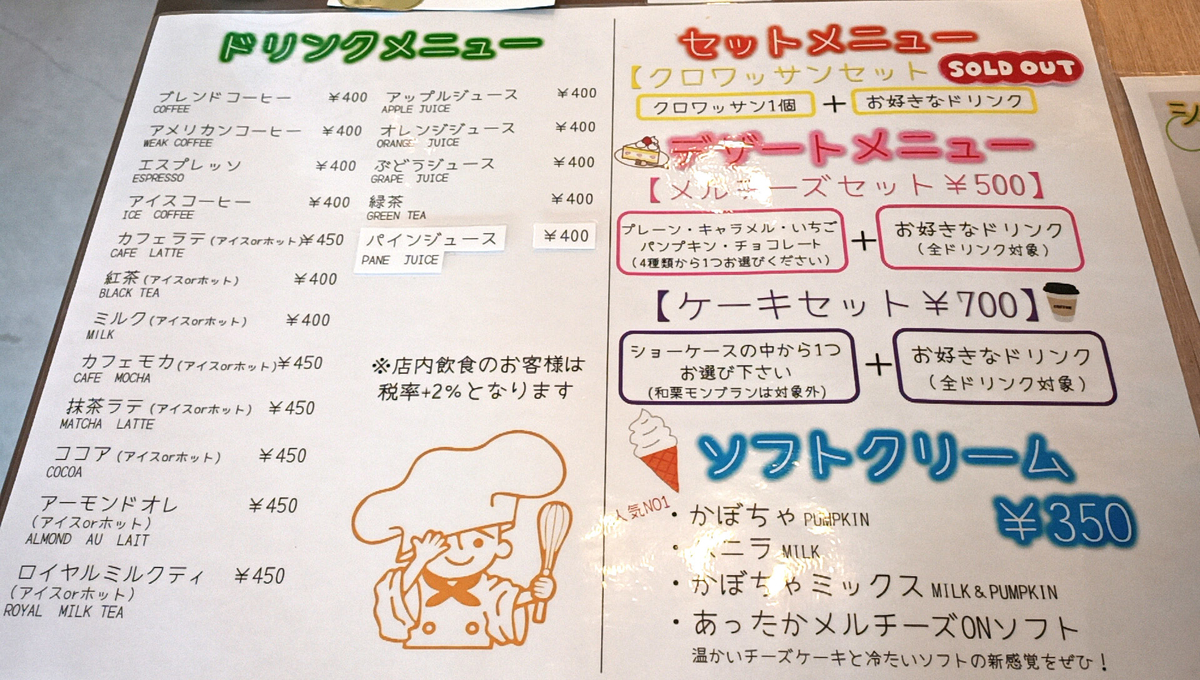 ドリンクメニュー
ブレンドコーヒー ¥400
COFFEE
アメリカンコーヒー ¥400
WEAK COFFEE
エスプレッソ ¥400
ESPRESSO
アイスコーヒー ¥400
ICE COFFEE
カフェラテ(アイスorホット)¥450
CAFE LATTE
紅茶(アイスorホット) ¥400
BLACK TEA
ミルク(アイスorホット) ¥400
MILK
カフェモカ(アイスorホット)¥450
CAFE MOCHA
抹茶ラテ(アイスorホット) ¥450
MATCHA LATTE
ココア(アイスorホット) ¥450
COCOA
アーモンドオレ ¥450
(アイスorホット)
ALMOND AU LAIT
ロイヤルミルクティ ¥450
(アイスorホット)
ROYAL MILK TEA
アップルジュース ¥400
APPLE JUICE
オレンジジュース ¥400
ORANGE JUICE
ぶどうジュース ¥400
GRAPE JUICE
緑茶 ¥400
GREEN TEA
パインジュース ¥400
PANE JUICE
※店内飲食のお客様は
税率+2%となります
セットメニュー
【クロワッサンセット SOLD OUT
クロワッサン1個 + お好きなドリンク
デザートメニュー
【メルチーズセット¥500】
プレーン・キャラメル・いちご
パンプキン・チョコレート
(4種類から1つお選びください)
+
お好きなドリンク
(全ドリンク対象)
【ケーキセット¥700】
ショーケースの中から1つ
お選び下さい
(和栗モンブランは対象外)
+
お好きなドリンク
(全ドリンク対象)
ソフトクリーム
¥350
人気NO1
・かぼちゃ PUMPKIN
・バニラ MILK
・かぼちゃミックス MILK&PUMPKIN
・あったかメルチーズONソフト
温かいチーズケーキと冷たいソフトの新感覚をぜひ!